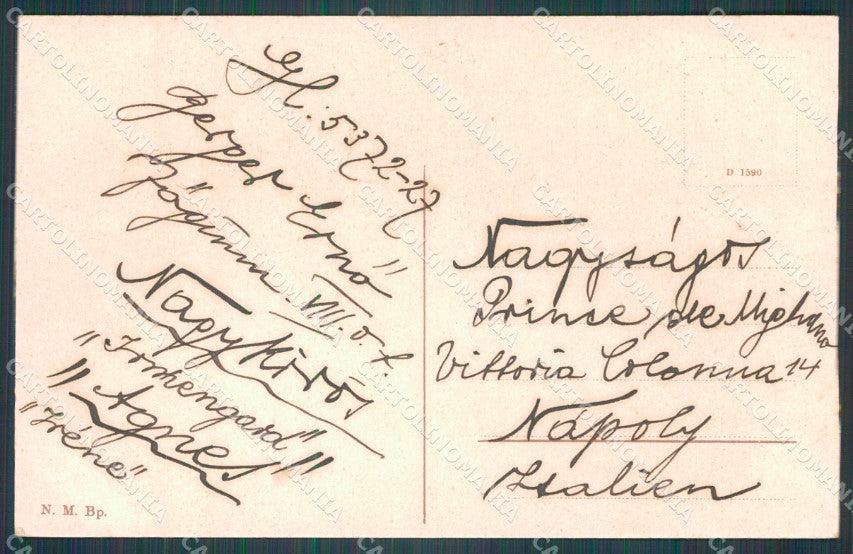 Gl: 5372-27
Gerger Ernő
főgimn. VIII. o. t.
Nagy Kőrös
"Irmengard"
"Agnes"
"Iréne"
N. M. Bp.
D 1590
Nagyságos
Prince de Mighano
Vittoria Colonna 14
Nápoly
Italien
CARTOLINOMANIA